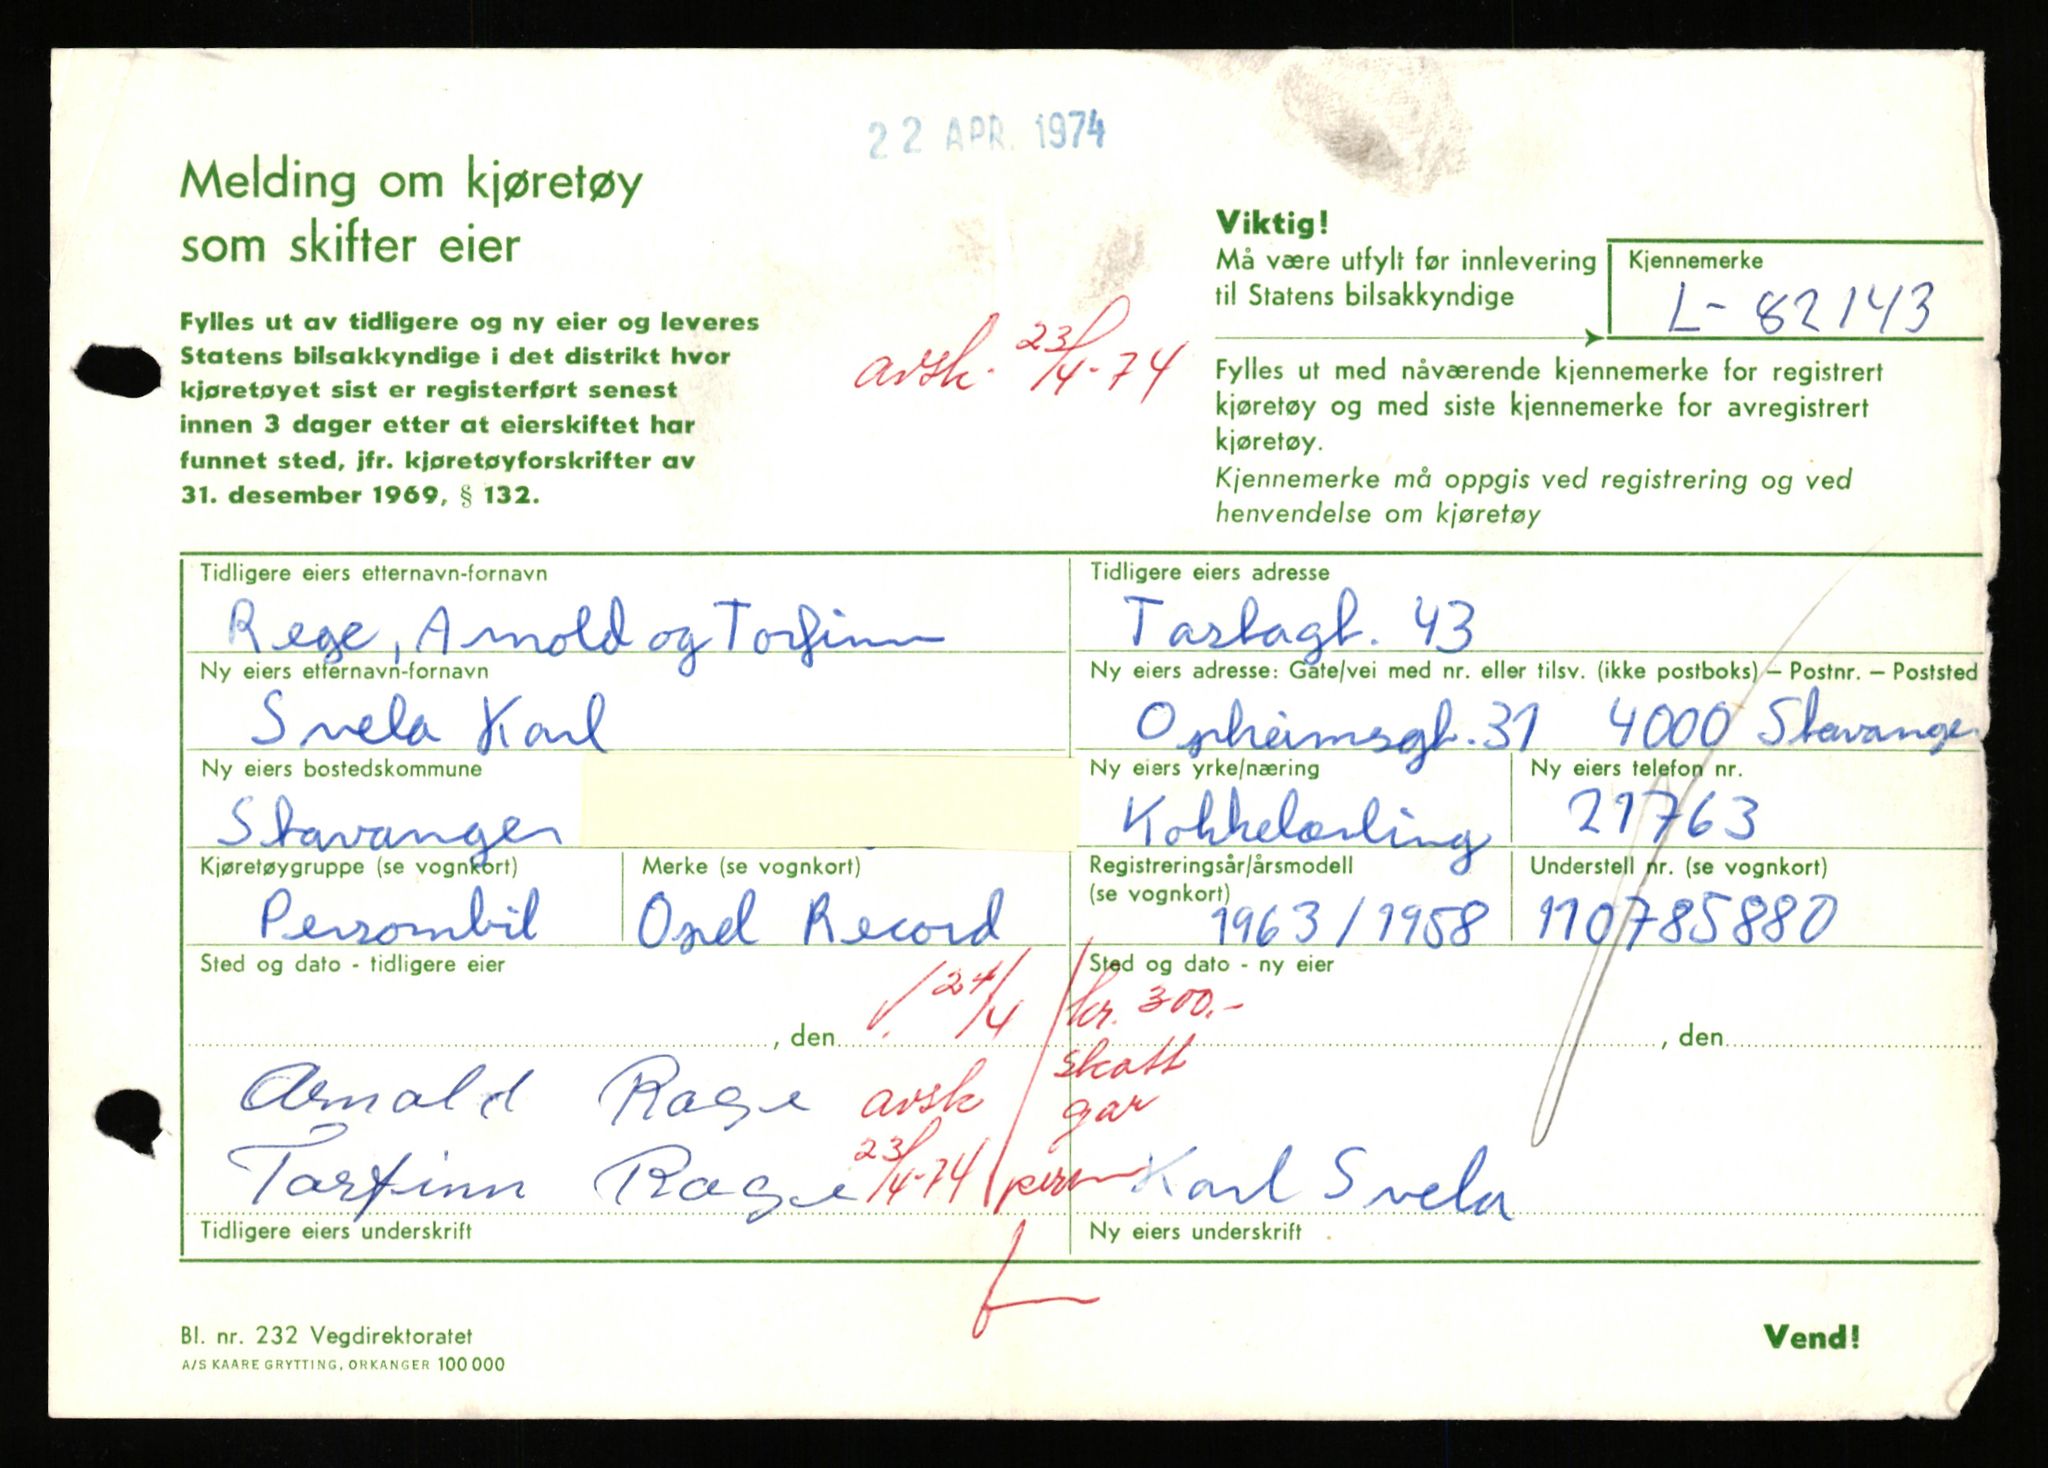 22 APR. 1974
Melding om kjøretøy
som skifter eier
Fylles ut av tidligere og ny eier og leveres
Statens bilsakkyndige i det distrikt hvor
kjøretøyet sist er registerført senest
innen 3 dager etter at eierskiftet har
funnet sted, jfr. kjøretøyforskrifter av
31. desember 1969, § 132.
avsk. 23/4-74
Viktig!
Må være utfylt før innlevering
til Statens bilsakkyndige
Kjennemerke
L-82143
Fylles ut med nåværende kjennemerke for registrert
kjøretøy og med siste kjennemerke for avregistrert
kjøretøy.
Kjennemerke må oppgis ved registrering og ved
henvendelse om kjøretøy
Tidligere eiers etternavn-fornavn
Rege, Arnold og Torfinn
Tidligere eiers adresse
Tastagt. 43
Ny eiers etternavn-fornavn
Svela Karl
Ny eiers adresse: Gate/vei med nr. eller tilsv. (ikke postboks) – Postnr. – Poststed
Opheimsgt. 31 4000 Stavanger
Ny eiers bostedskommune
Stavanger
Ny eiers yrke/næring
Kokkelærling
Ny eiers telefon nr.
21763
Kjøretøygruppe (se vognkort)
Personbil
Merke (se vognkort)
Opel Record
Registreringsår/årsmodell
(se vognkort)
1963/1958
Understell nr. (se vognkort)
110785880
Sted og dato - tidligere eier
Sted og dato - ny eier
, den
24/4
kr. 300.-
skatt
gar
, den
Arnold Rage
avsk
23/4-74
Torfinn Rage
Karl Svela
Tidligere eiers underskrift
Ny eiers underskrift
Bl. nr. 232 Vegdirektoratet
A/S KAARE GRYTTING, ORKANGER 100 000
Vend!